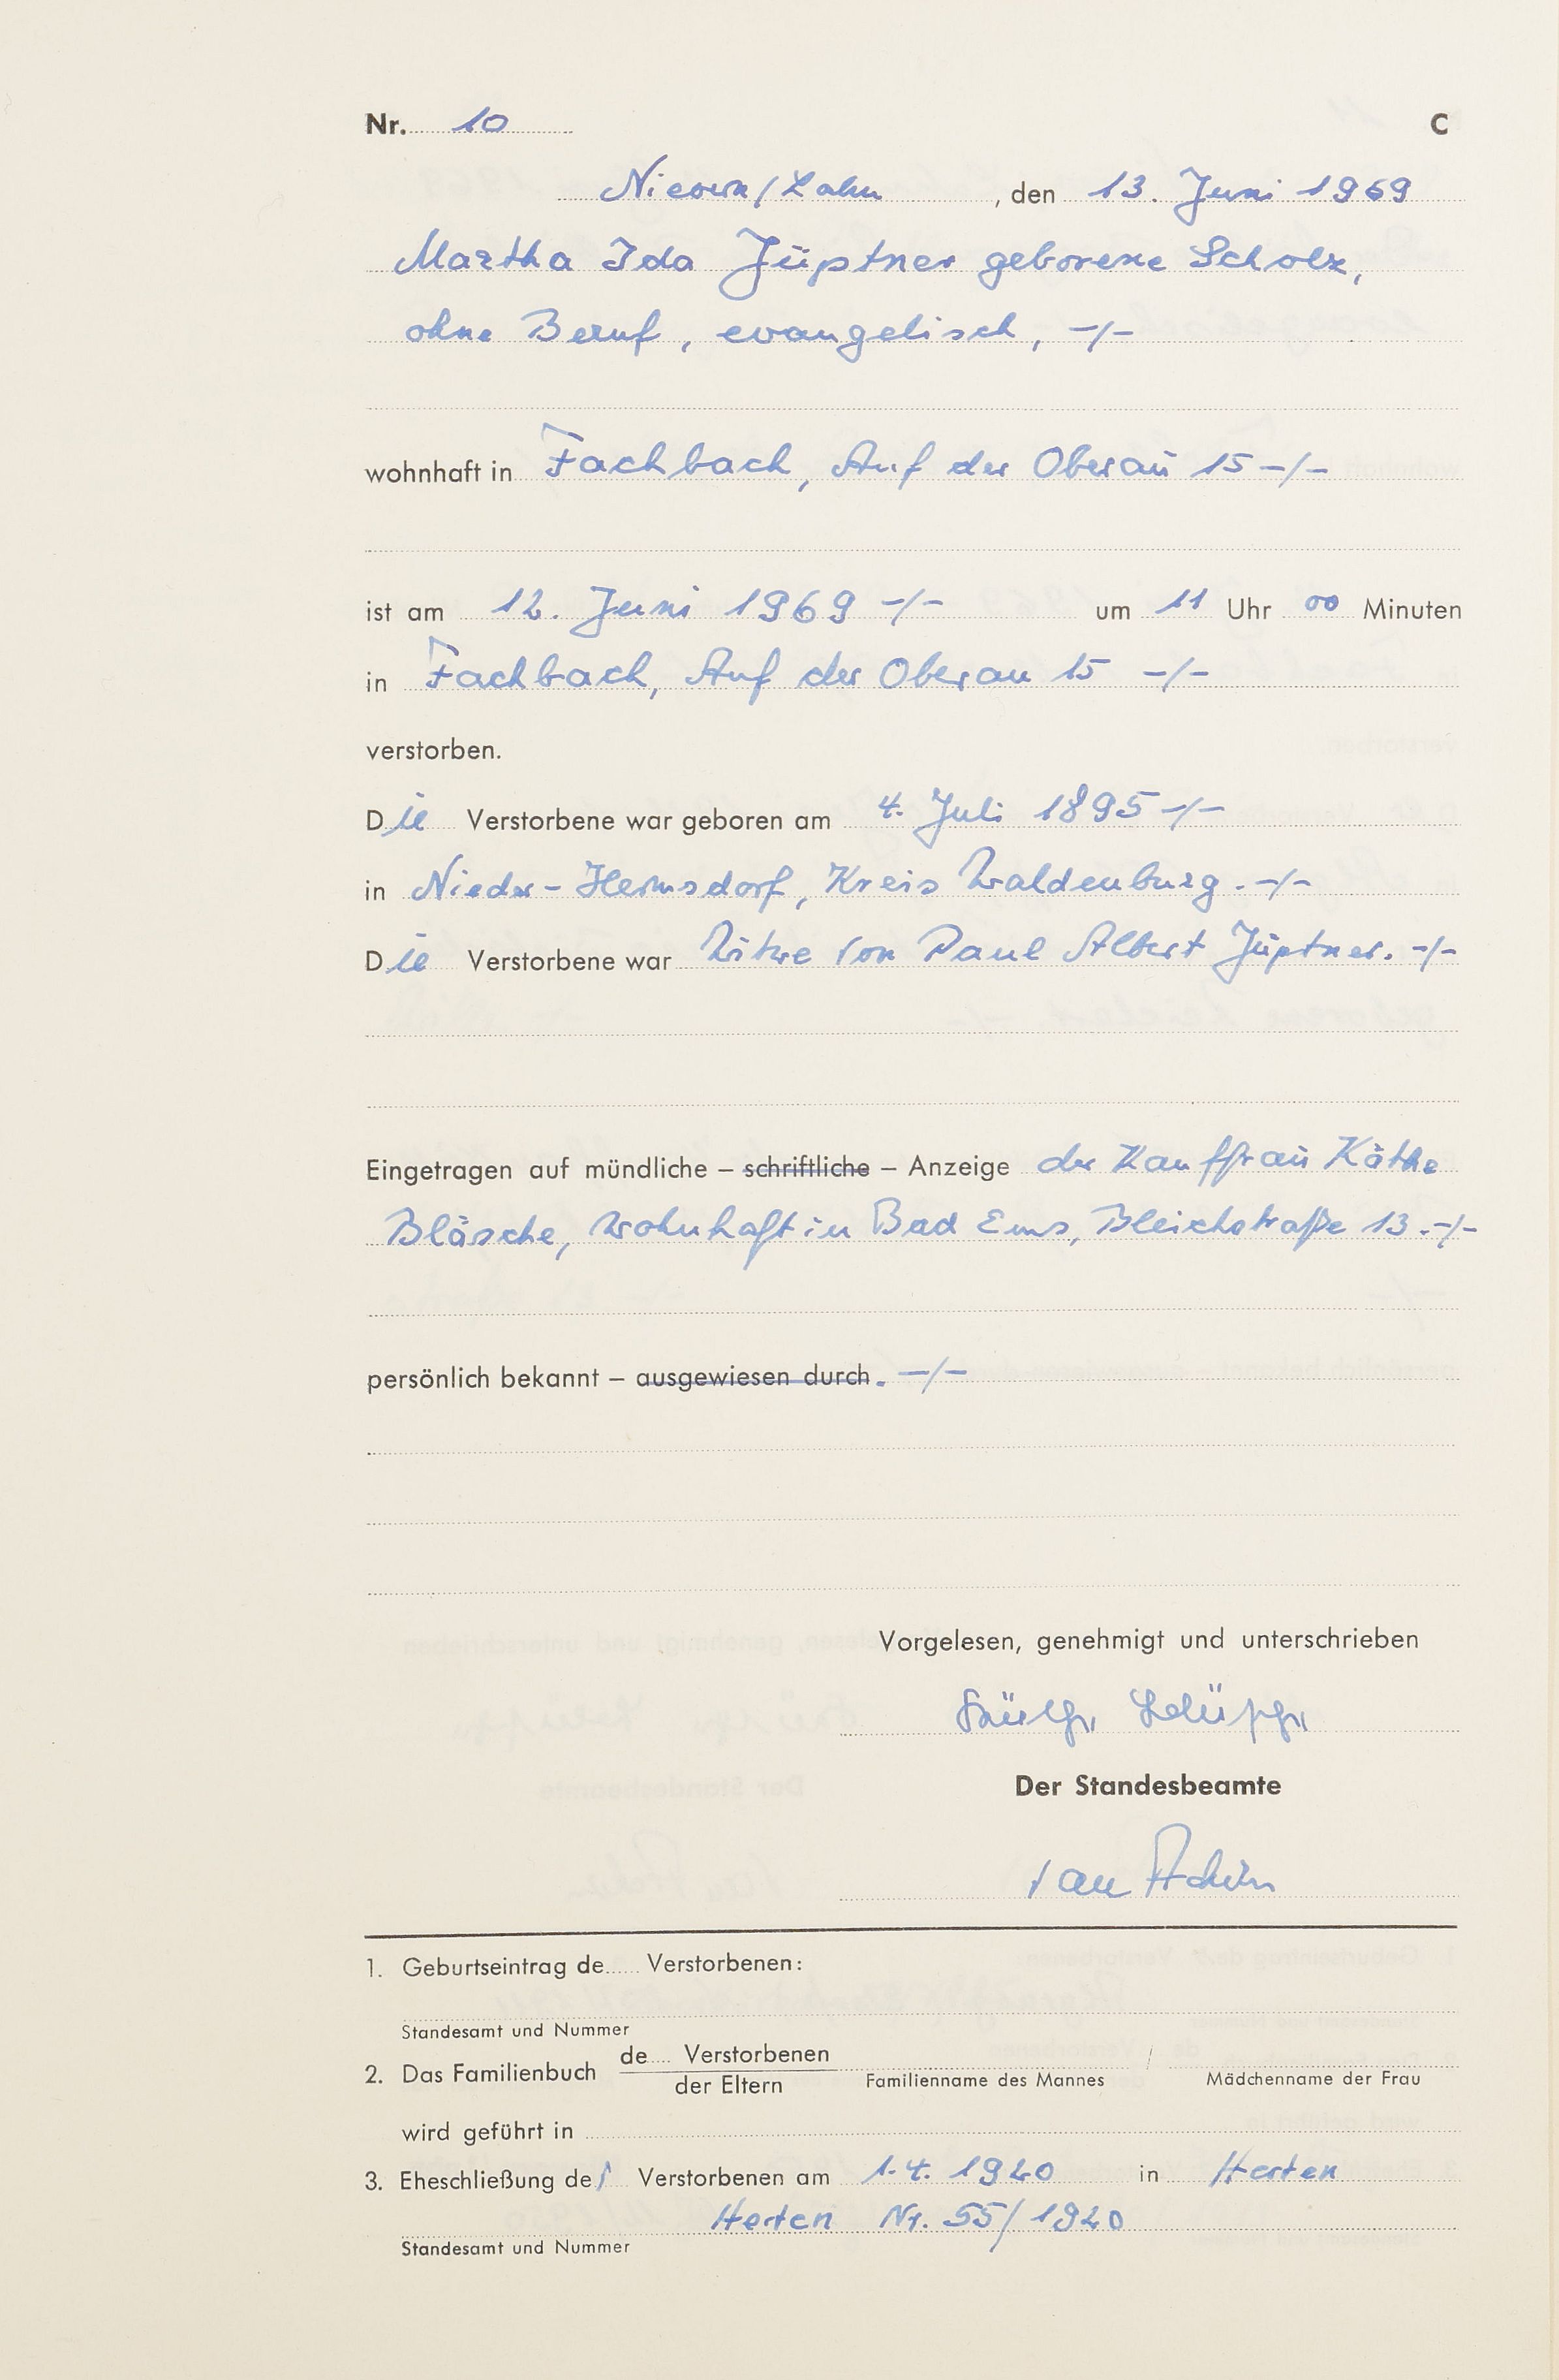 Nr. 10 C
Nievern/Lahn, den 13. Juni 1969
Martha Ida Jüptner geborene Scholz,
ohne Beruf, evangelisch, -/-
wohnhaft in Fachbach, Auf der Oberau 15 -/-
ist am 12. Juni 1969 -/- um 11 Uhr 00 Minuten
in Fachbach, Auf der Oberau 15 -/-
verstorben.
Die Verstorbene war geboren am 4. Juli 1895 -/-
in Nieder-Hermsdorf, Kreis Waldenburg. -/-
Die Verstorbene war Witwe von Paul Albert Jüptner. -/-
Eingetragen auf mündliche – schriftliche – Anzeige der Kauffrau Käthe
Bläsche, wohnhaft in Bad Ems, Bleichstraße 13. -/-
persönlich bekannt – ausgewiesen durch. -/-
Vorgelesen, genehmigt und unterschrieben
Der Standesbeamte
1. Geburtseintrag de Verstorbenen:
Standesamt und Nummer
2. Das Familienbuch de Verstorbenen
der Eltern Familienname des Mannes Mädchenname der Frau
wird geführt in
3. Eheschließung der Verstorbenen am 1.4.1920 in Herten
Herten Nr. 55/1920
Standesamt und Nummer